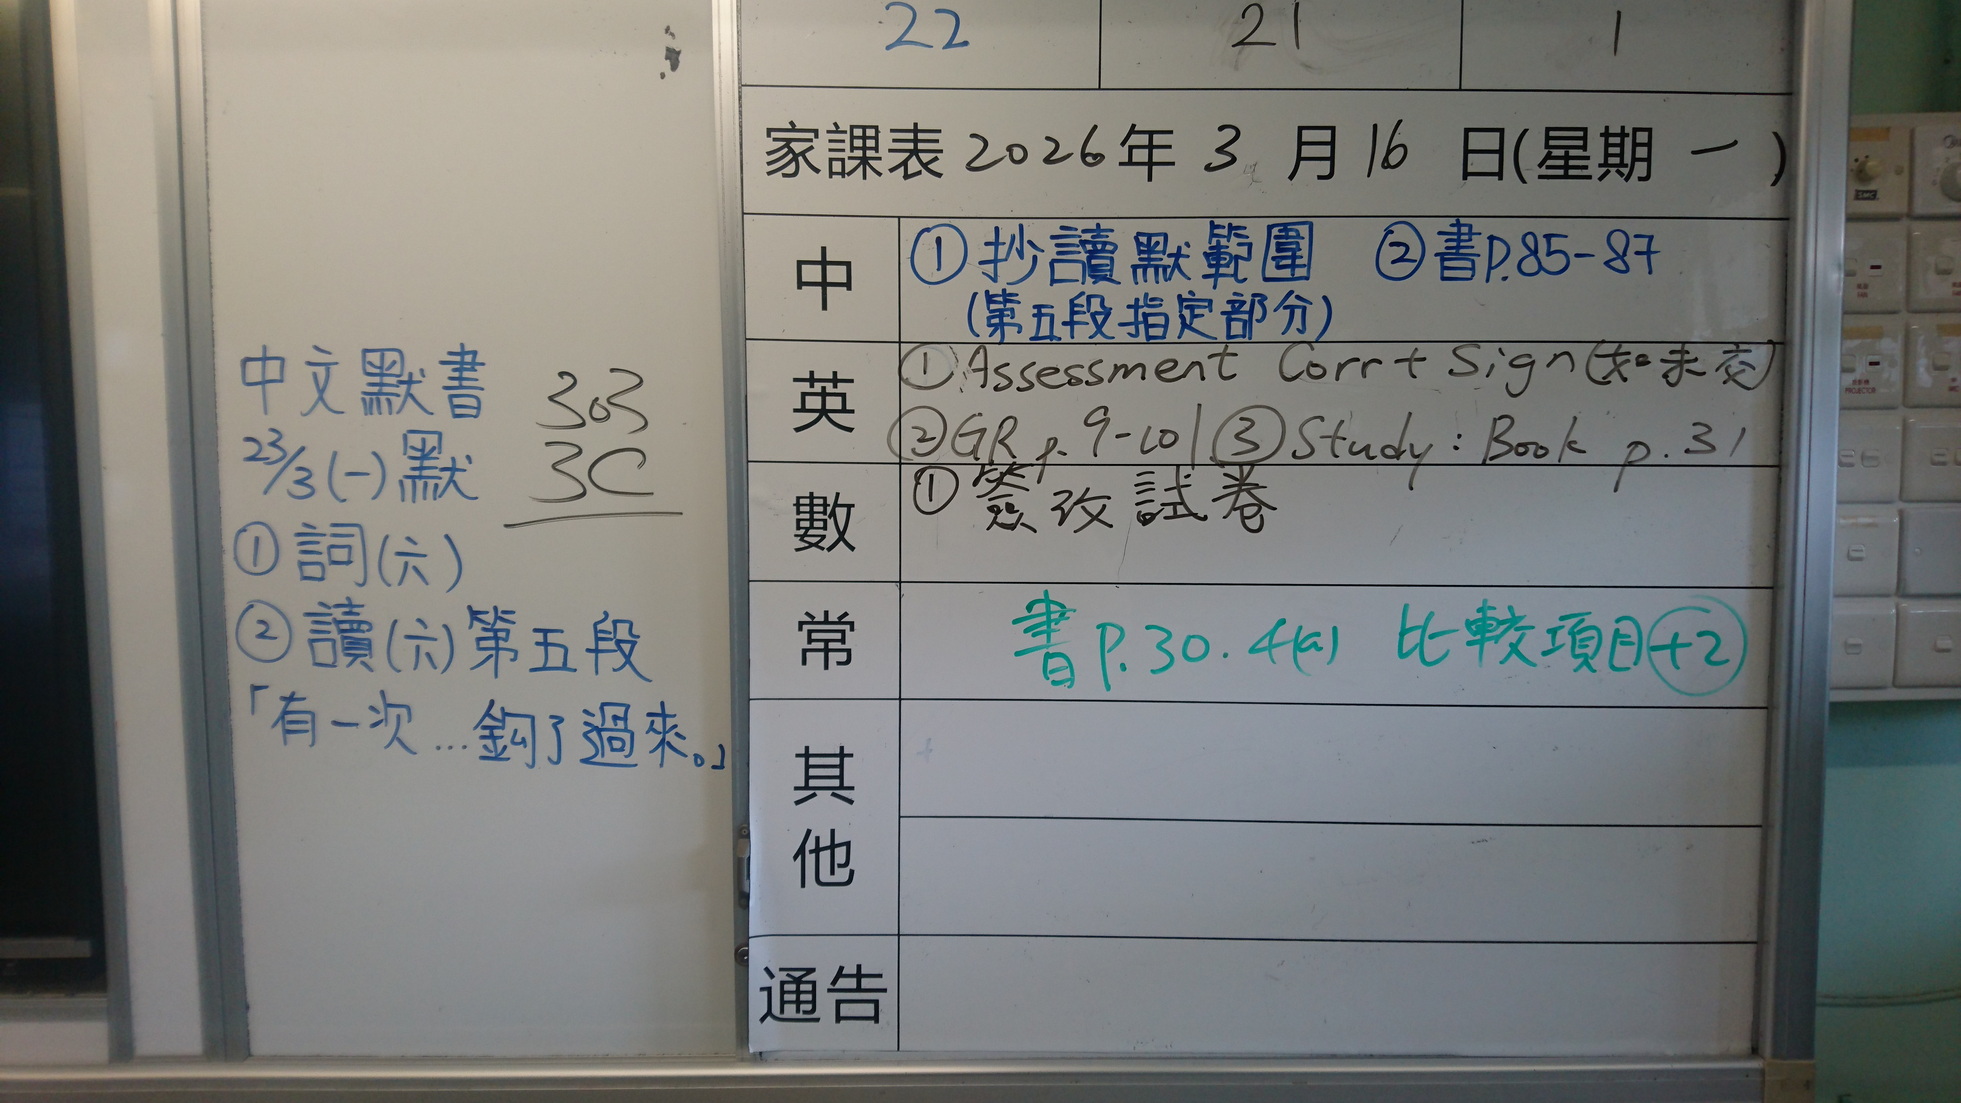 中文默書
23/3(一)默
①詞(六)
②讀(六)第五段
「有一次…鈎了過來。」
303
3C
22 21 1
家課表 2026年 3 月 16 日(星期 一 )
中 ①抄讀默範圍 ②書P.85-87
(第五段指定部分)
英 ①Assessment Corr+ Sign(如未交)
②GR p. 9-10 ③Study: Book p.31
數 ①簽改試卷
常 書P.30.4(a) 比較項目+2
其他
通告